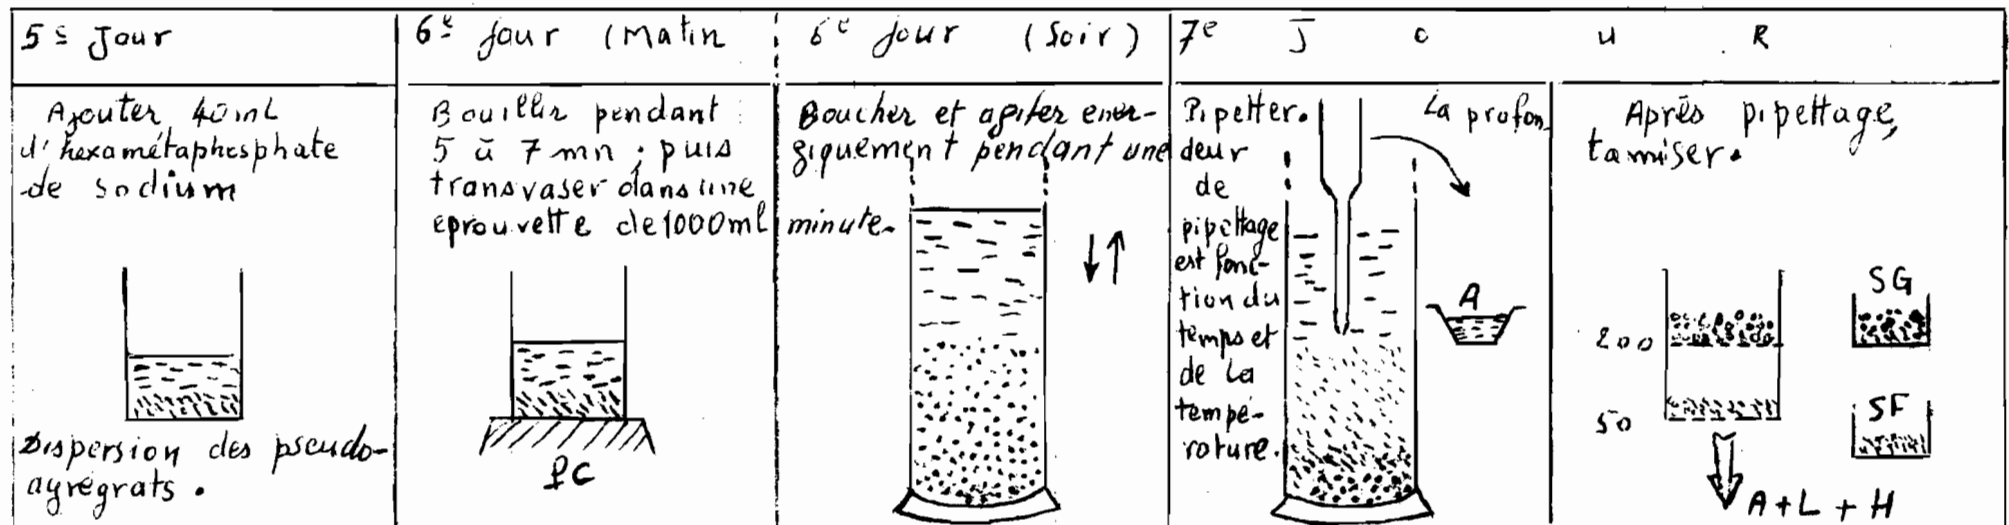 5e Jour
Ajouter 40 mL
d'hexamétaphosphate
de sodium
Dispersion des pseudo-
agrégrats.
6e jour (Matin
Bouillir pendant
5 à 7 mn ; puis
transvaser dans une
éprouvette de 1000 ml
PC
6e jour (Soir)
Boucher et agiter ener-
giquement pendant une
minute.
7e J o u R
Pipetter. La profon
deur
de
pipettage
est fonc-
tion du
temps et
de la
tempé-
rature.
A
Après pipettage,
tamiser.
200
50
SG
SF
A+L+H